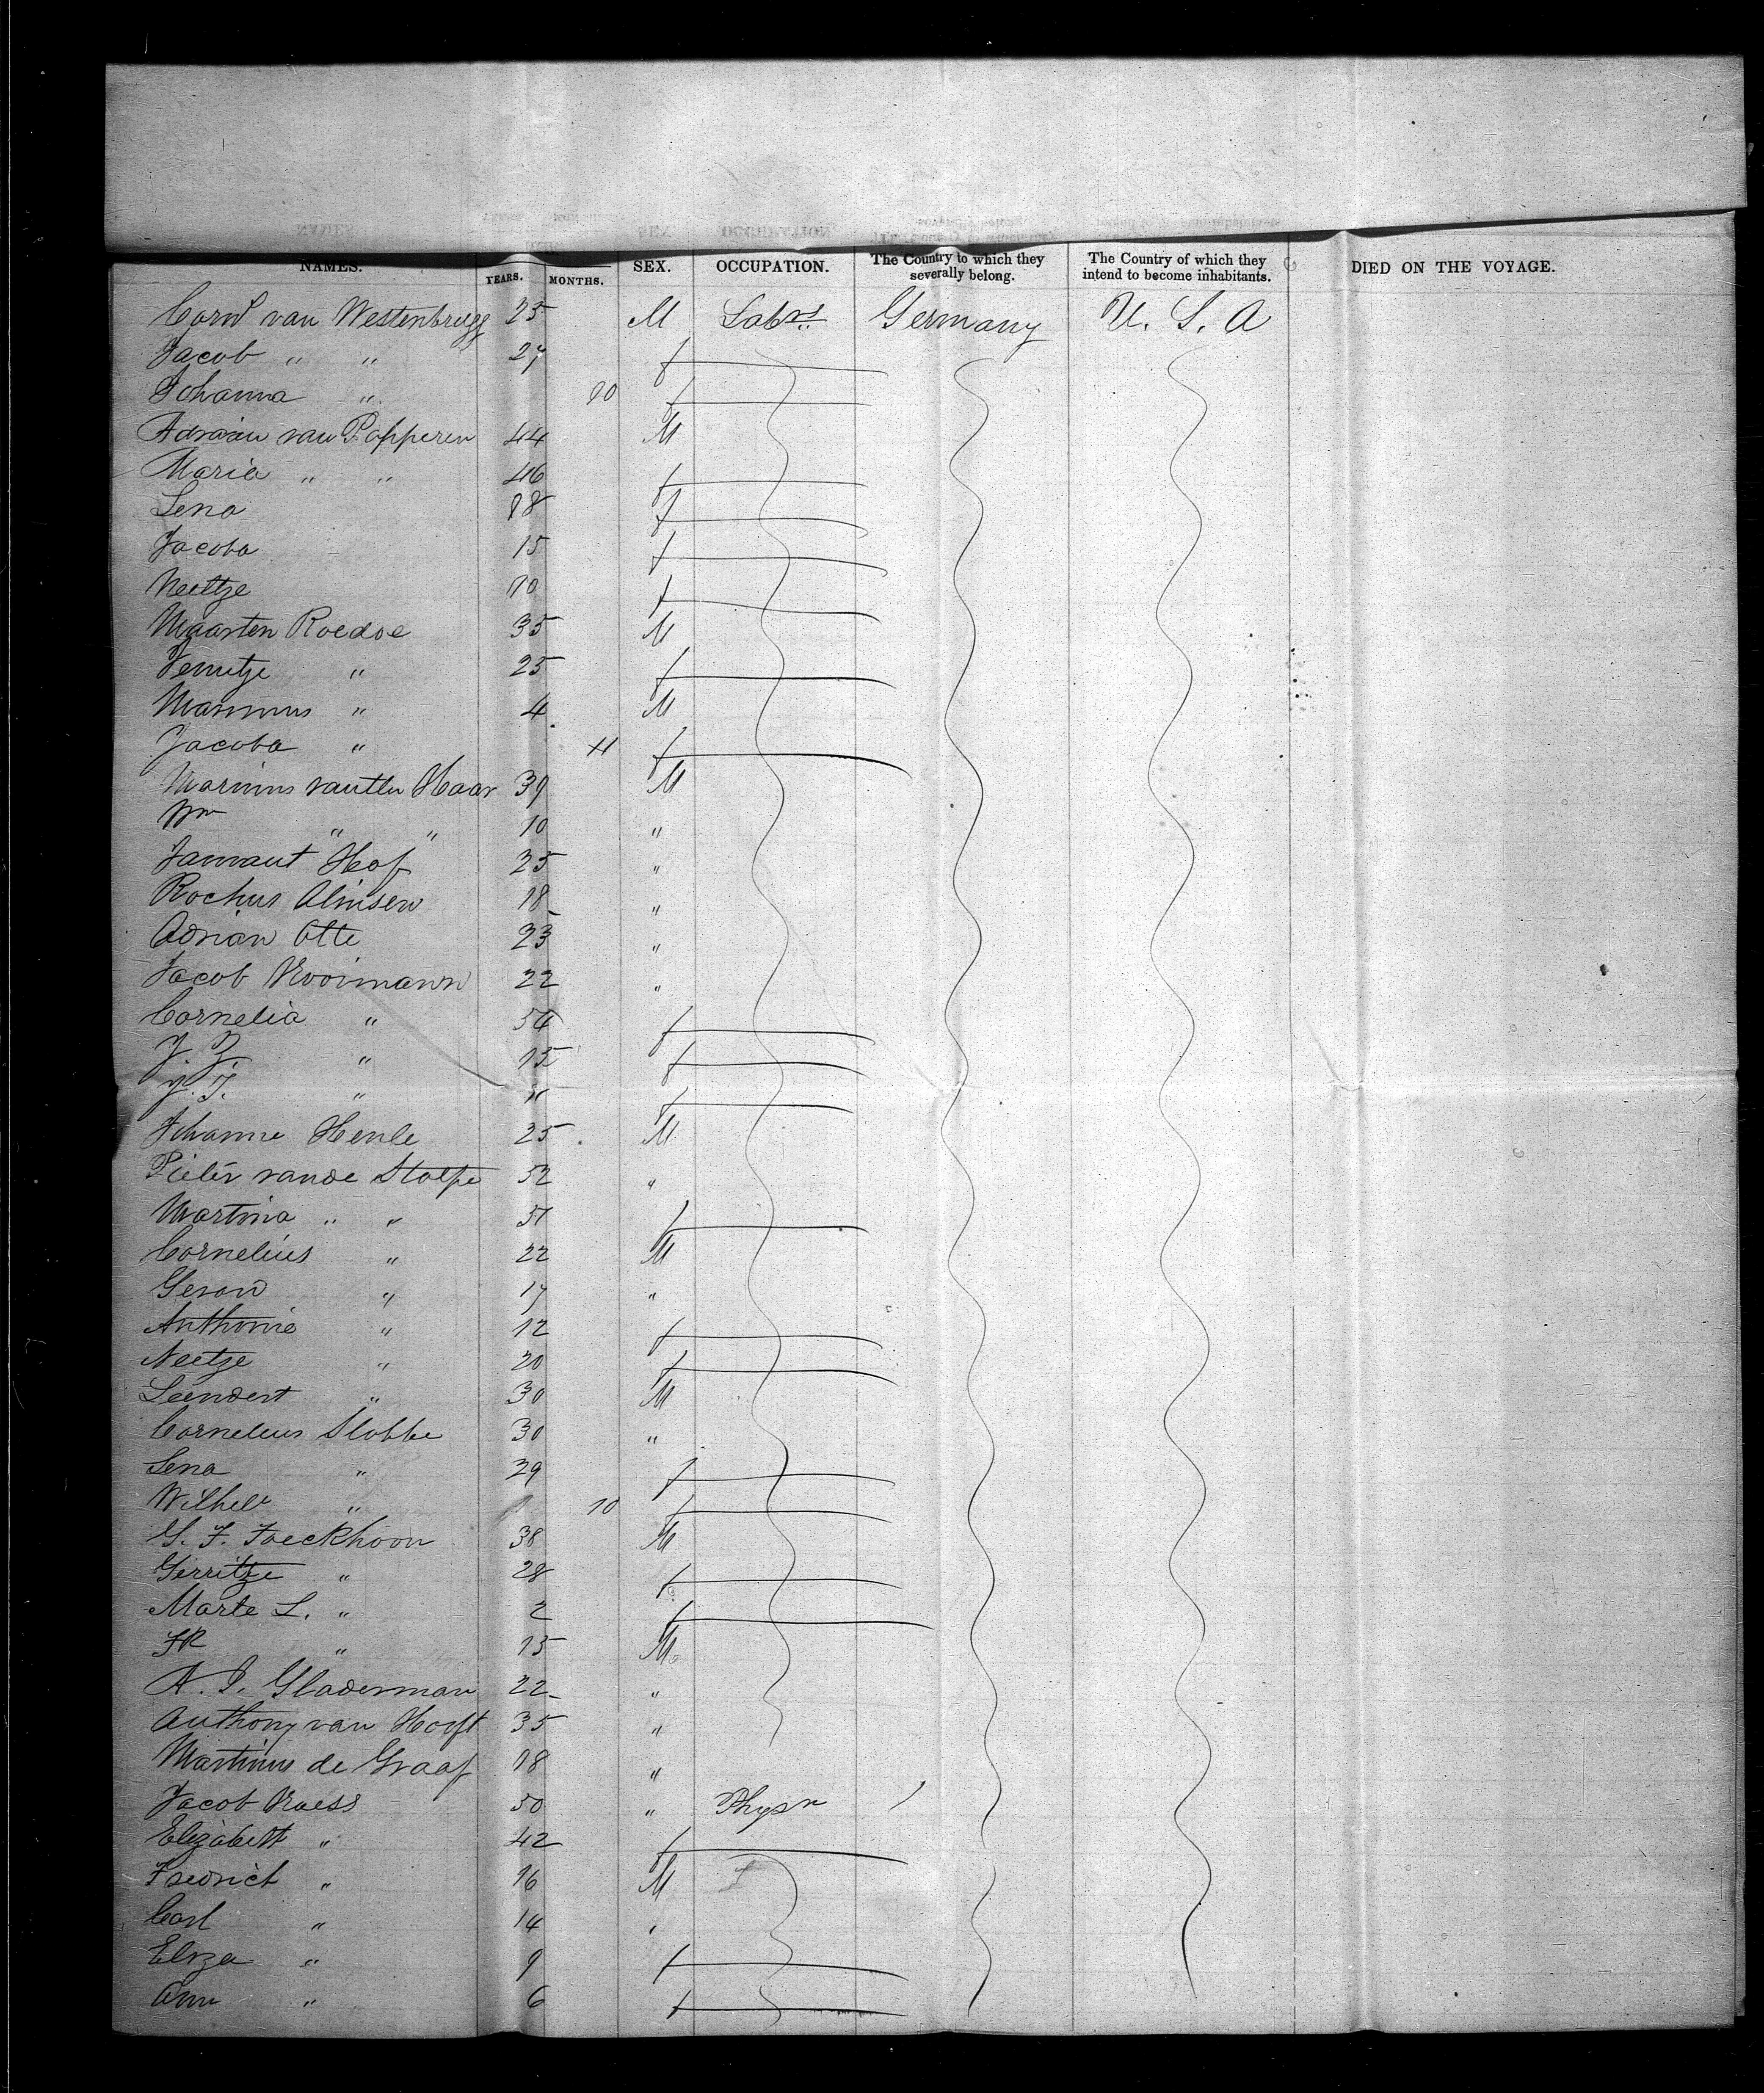 NAMES. YEARS. MONTHS. SEX. OCCUPATION. The Country to which they severally belong. The Country of which they intend to become inhabitants. DIED ON THE VOYAGE.
Corn? van Westenbrugg 25 M Labrs Germany U. S. A
Jacob " " 27 f
Johanna " 10 f
Adriaen van Popperen 44 M
Maria " " 46 f
Lena 18 f
Jacoba 15 f
Neeltze 10 f
Maarten Roedoe 35 M
25 f
Marinus " 4 M
Jacoba " 11 f
Marinus van der Haar 39 M
Wm " " 10 "
Hof 25 "
Rochus 18 "
Adrian Otte 23 "
Jacob Krooimann 22 "
Cornelia " 54 f
J. J. " 15 f
J. J. " " f
Johanne Henle 25 M
Pieter van de Stolpe 52 "
Martina " " 51 f
Cornelius " 22 M
Geson " 17 "
Anthonie " 12 f
Neetze " 20 f
Leendert " 30 M
Cornelius Slobbe 30 "
Lena " 29 f
" 10 f
G. F. Faeckhoon 38 M
Gerritze " 28 f
Marte L. " 2 f
" 15 M
A. J. Gladerman 22 "
Anthony van Hooft 35 "
Martinus de Graaf 18 "
Jacob Kraess 50 " Physn
Elizabeth " 42 f
Fredrich " 16 M
Carl " 14 "
Eliza " 9 f
Ann " 6 f